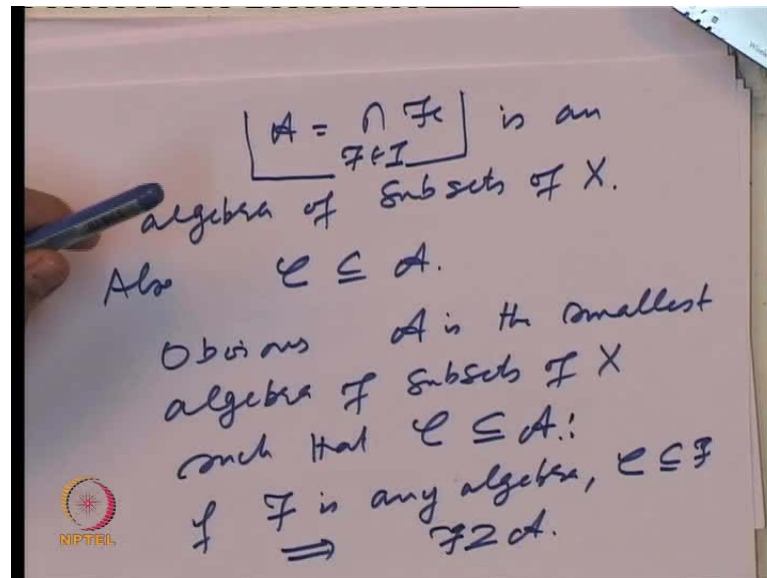 A = ∩ F is an
F∈I
algebra of subsets of X.
Also C ⊆ A.
Obvious A is the smallest
algebra of subsets of X
such that C ⊆ A:
if F is any algebra, C ⊆ F
⟹ F ⊇ A.
NPTEL